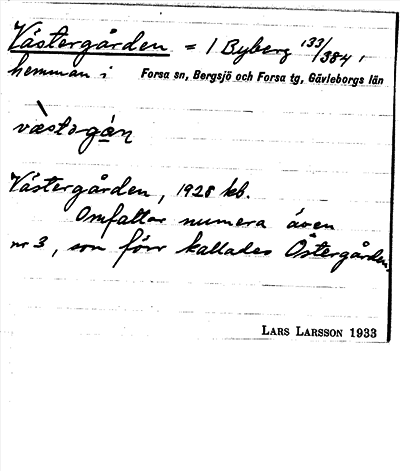 Västergården = 1 Byberg 133/384
hemman i Forsa sn, Bergsjö och Forsa tg, Gävleborgs län
Västergården, 1928 kb.
Omfattar numera även
nr 3, som förr kallades Östergården.
LARS LARSSON 1933